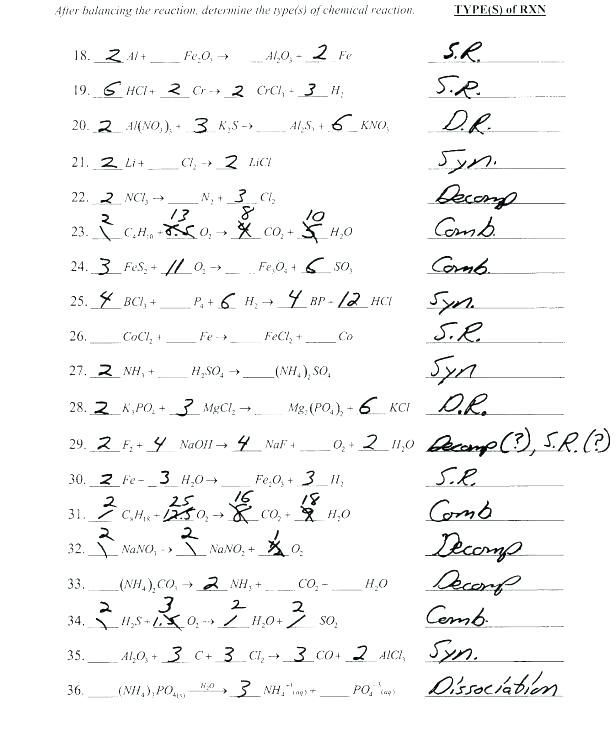 After balancing the reaction, determine the type(s) of chemical reaction. TYPE(S) of RXN
18. 2 Al + ___ Fe₂O₃ → ___ Al₂O₃ + 2 Fe S.R.
19. 6 HCl + 2 Cr → 2 CrCl₃ + 3 H₂ S.R.
20. 2 Al(NO₃)₃ + 3 K₂S → ___ Al₂S₃ + 6 KNO₃ D.R.
21. 2 Li + ___ Cl₂ → 2 LiCl Syn.
22. 2 NCl₃ → ___ N₂ + 3 Cl₂ Decomp
23. 2 C₄H₁₀ + 13 O₂ → 8 CO₂ + 10 H₂O Comb.
24. 3 FeS₂ + 11 O₂ → ___ Fe₃O₄ + 6 SO₃ Comb.
25. 4 BCl₃ + ___ P₄ + 6 H₂ → 4 BP + 12 HCl Syn.
26. ___ CoCl₂ + ___ Fe → ___ FeCl₂ + ___ Co S.R.
27. 2 NH₃ + ___ H₂SO₄ → ___ (NH₄)₂SO₄ Syn
28. 2 K₃PO₄ + 3 MgCl₂ → ___ Mg₃(PO₄)₂ + 6 KCl D.R.
29. 2 F₂ + 4 NaOH → 4 NaF + ___ O₂ + 2 H₂O Decomp (?), S.R. (?)
30. 2 Fe + 3 H₂O → ___ Fe₂O₃ + 3 H₂ S.R.
31. 2 C₈H₁₈ + 25 O₂ → 16 CO₂ + 18 H₂O Comb
32. 2 NaNO₃ → 2 NaNO₂ + 1 O₂ Decomp
33. ___ (NH₄)₂CO₃ → 2 NH₃ + ___ CO₂ + ___ H₂O Decomp
34. 2 H₂S + 3 O₂ → 2 H₂O + 2 SO₂ Comb.
35. ___ Al₂O₃ + 3 C + 3 Cl₂ → 3 CO + 2 AlCl₃ Syn.
36. ___ (NH₄)₃PO₄(s) H₂O→ 3 NH₄⁺¹(aq) + ___ PO₄⁻³(aq) Dissociation